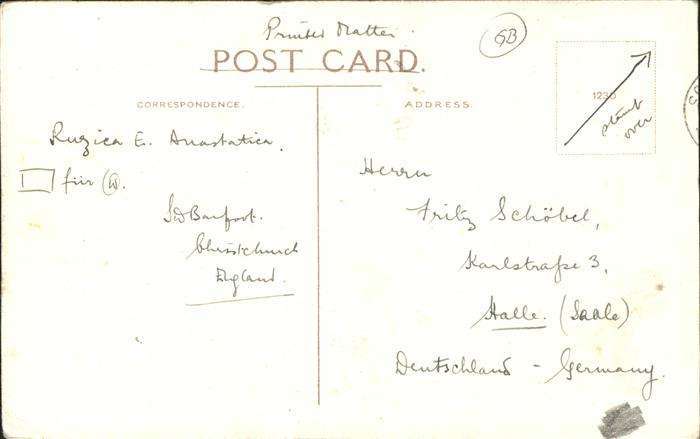 Printed Matter
GB
POST CARD.
CORRESPONDENCE.
ADDRESS
123
stamp
over
Ruzica E. Anastatica.
für W.
Christchurch
England.
Herrn
Fritz Schöbel,
Karlstraße 3,
Halle. (Saale)
Deutschland - Germany.